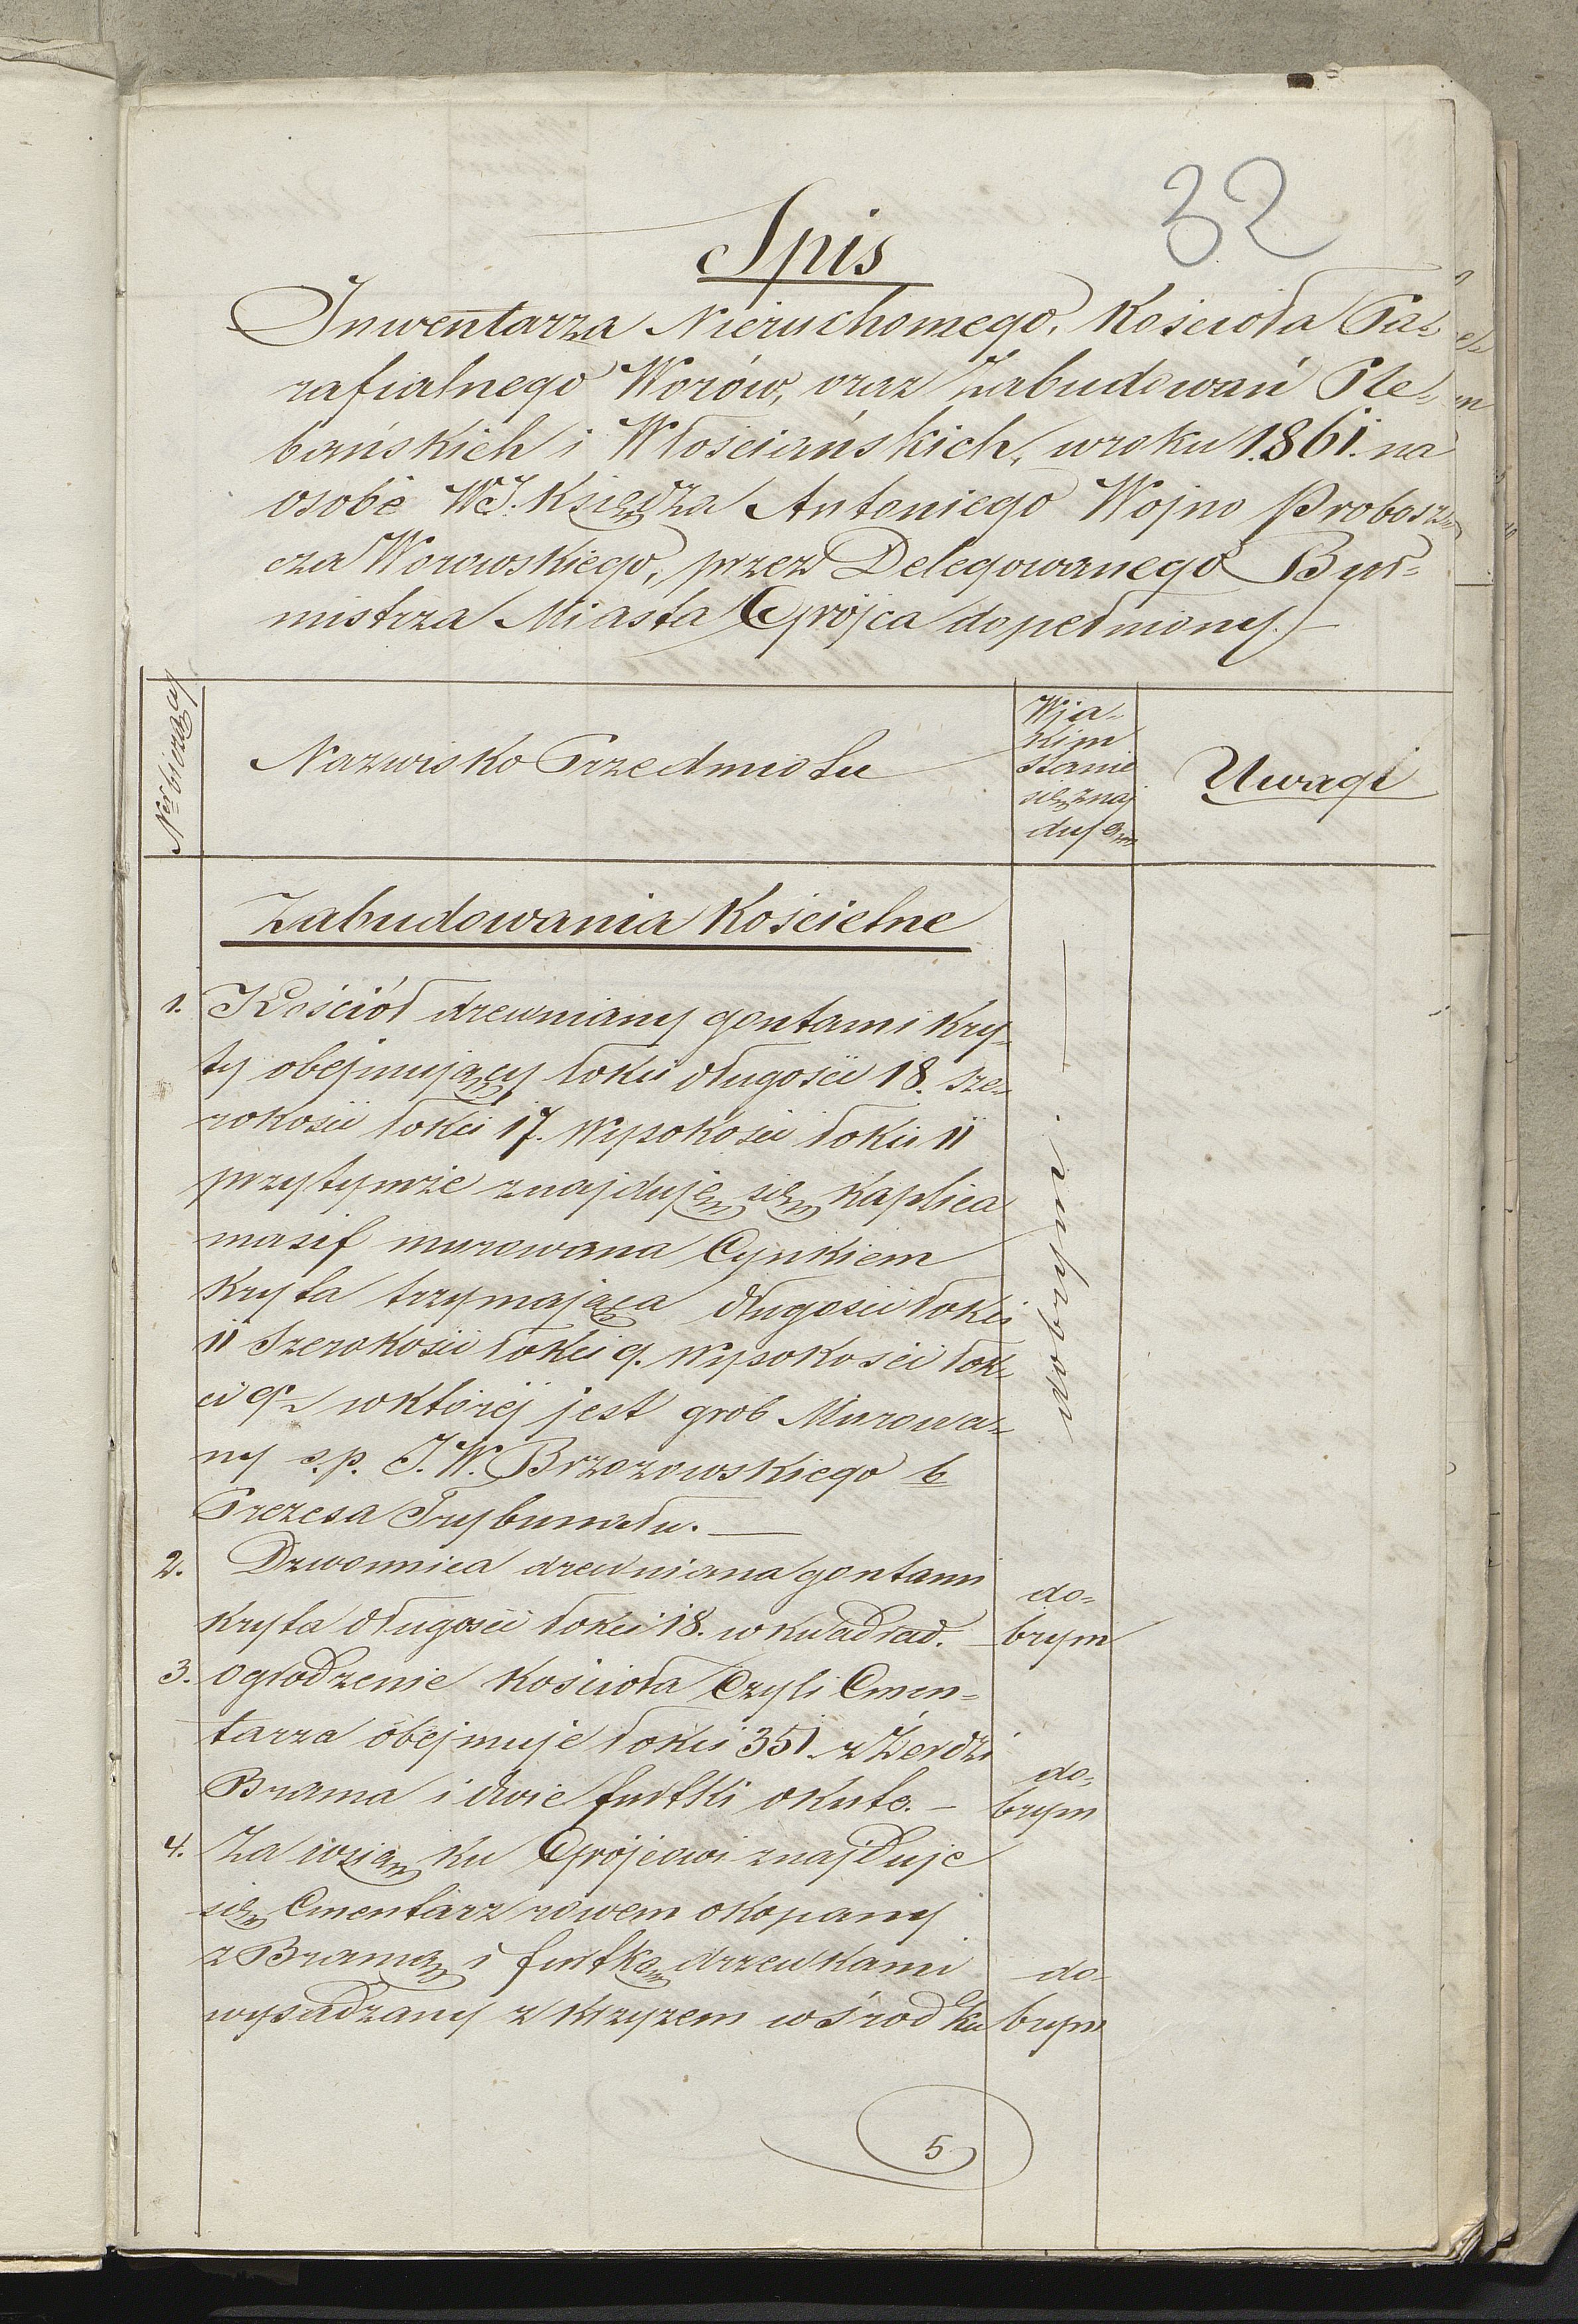 32
Spis
Inwentarza Nieruchomego, Kościoła Pa-
rafialnego Worów, oraz Zabudowań Ple-
bańskich i Włościańskich, w roku 1861. na
osobę WJ. Księdza Antoniego Wojno Probosz-
cza Worowskiego, przez Delegowanego Bur-
mistrza Miasta Grójca dopełniony. —
Ner bieżący
Nazwisko Przedmiotu
W ja-
kim
stanie
się znaj
duję
Uwagi
Zabudowania Kościelne
1. Kościół drewniany gontami kry-
ty obejmujący łokci długości 18. sze-
rokości łokci 17. wysokości łokci 11
przytymże znajduję się Kaplica
masif murowana Cynkiem
Kryta trzymająca długości łokci
11 Szerokości łokci 9. wysokości łok-
ci 9 w której jest grób Murowa-
ny s.p. J.W. Brzozowskiego b
Prezesa Trybunału. —
dobrym
2. Dzwonnica drewniana gontami
kryta długości łokci 18. w kwadrad. —
do-
brym
3. ogrodzenie Kościoła Czyli Cmen-
tarza obejmuje łokci 351. z Żerdzi
Brama i dwie furtki okute. —
do-
brym
4. Za wsią ku Grójcowi znajduje
się Cmentarz rowem okopany
z Bramą i furtką drzewkami
wysadzany z krzyżem w środku
do-
brym
5